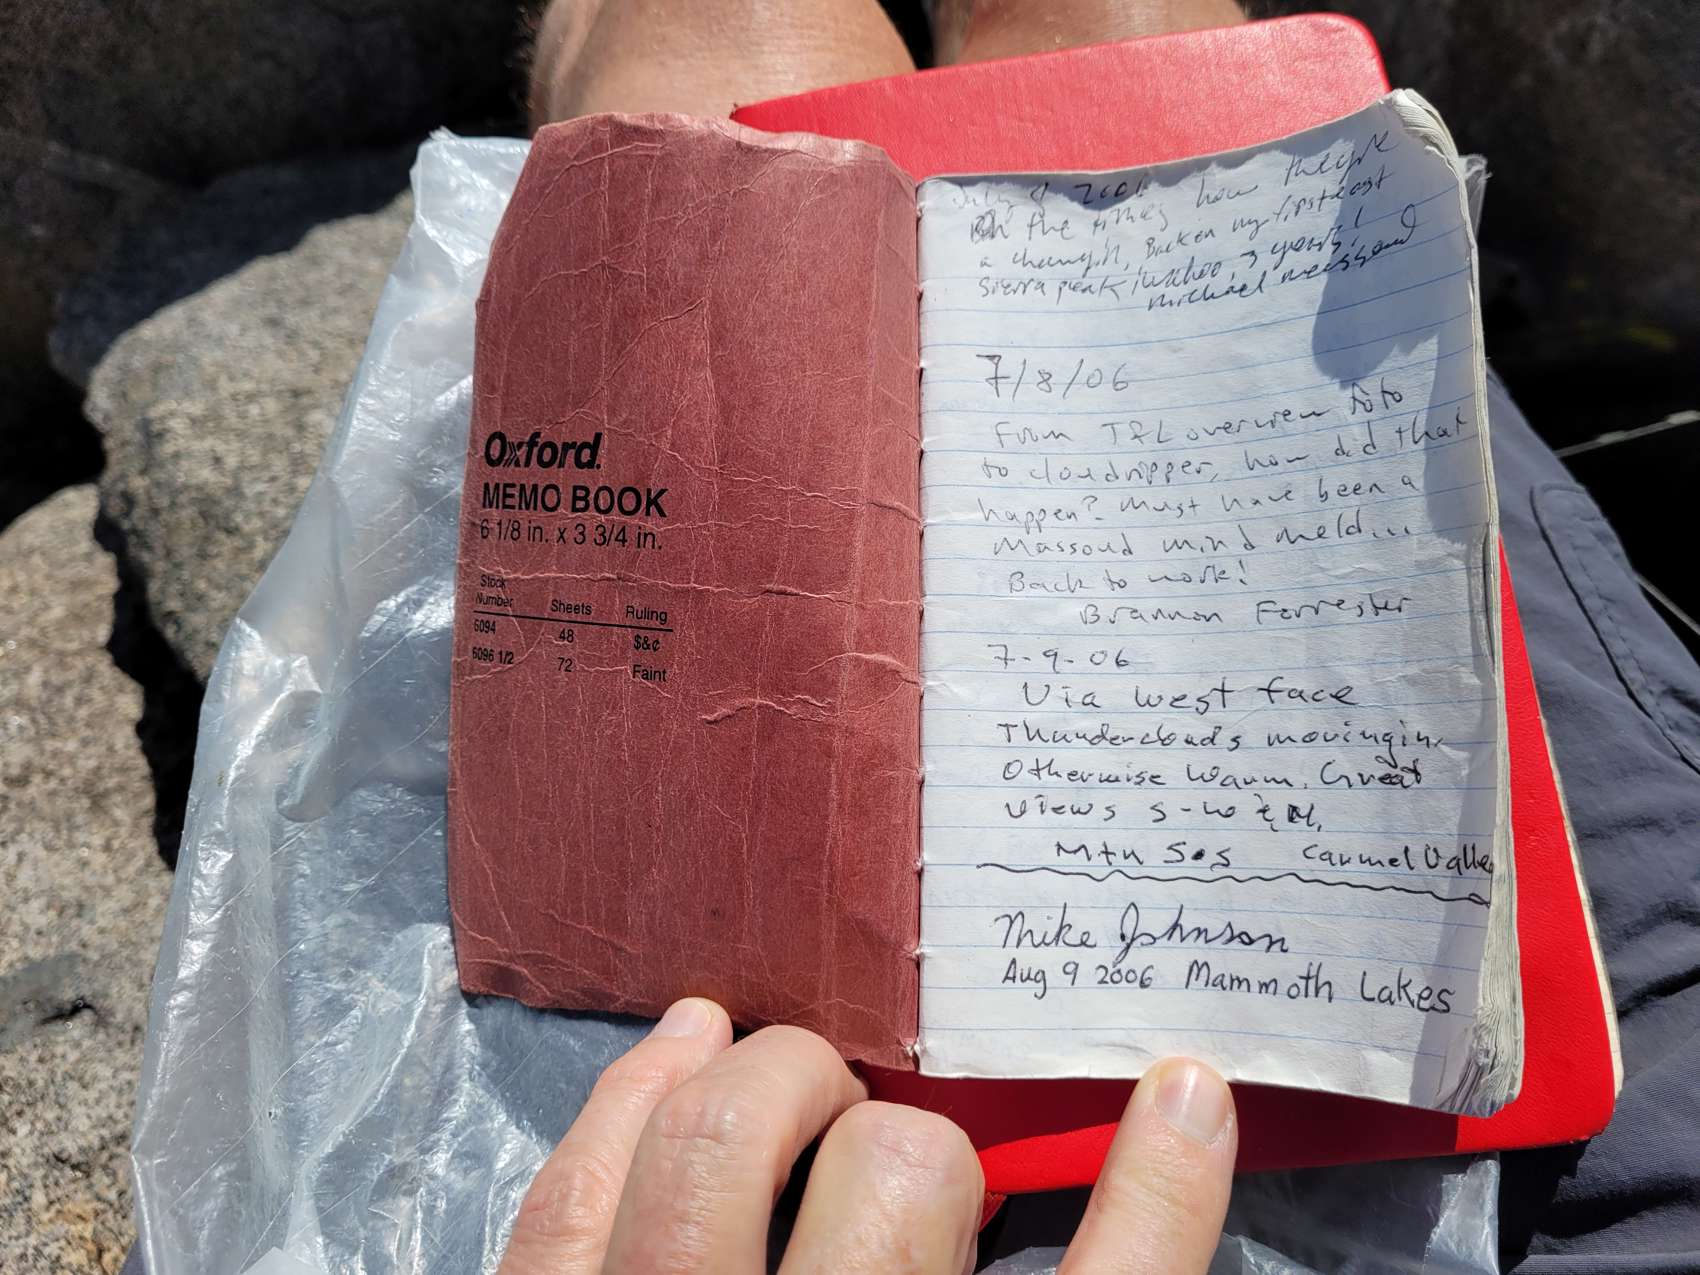 Oxford.
MEMO BOOK
6 1/8 in. x 3 3/4 in.
Stock Number Sheets Ruling
6094 48 $&¢
6096 1/2 72 Faint
July 8 2006
Oh the times how they're
a changin, Back on my first east
Sierra peak, wahoo, 3 years!
michael massoud
7/8/06
From T&L overview foto
to cloudripper, how did that
happen? Must have been a
Massoud mind meld...
Back to work!
Brannon Forrester
7-9-06
Via West face
Thunderclouds moving in,
Otherwise Warm. Great
Views S-W & N.
Mtn Sos Carmel Valley
Mike Johnson
Aug 9 2006 Mammoth Lakes